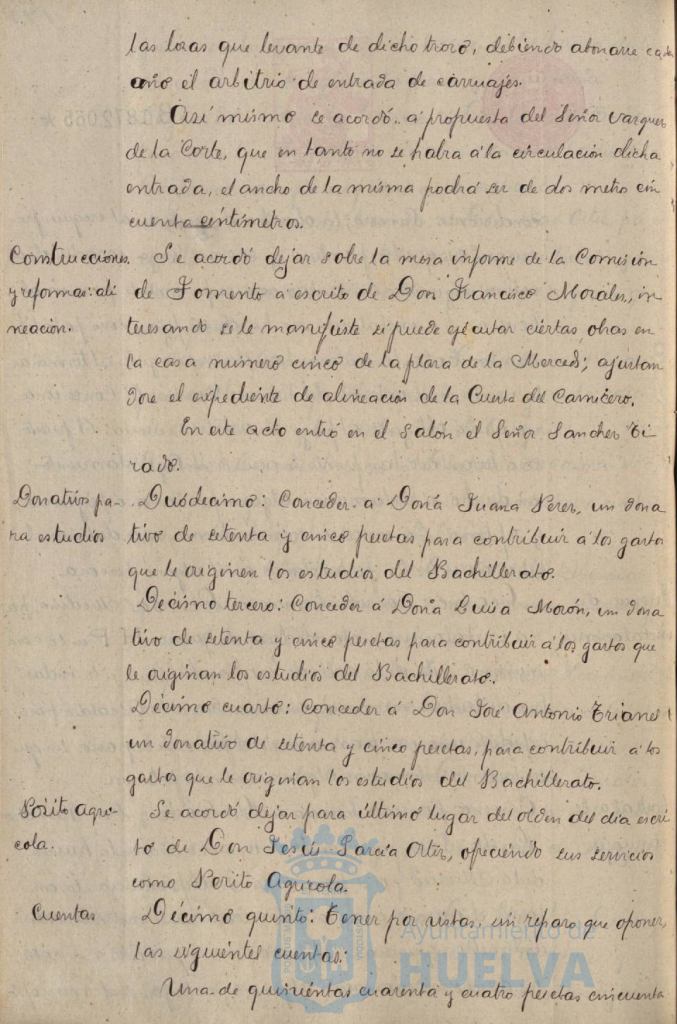 las losas que levante de dicho trozo, debiendo abonarse cada
año el arbitrio de entrada de carruajes.
Así mismo se acordó.. á propuesta del Señor Vazquez
de la Corte, que en tanto no se habra á la circulación dicha
entrada, el ancho de la misma podrá ser de dos metro cin
cuenta centimetros.
Construcciones
y reformas: ali
neación.
Se acordó dejar sobre la mesa informe de la Comisión
de Fomento á escrito de Don Francisco Morales, in
teresando se le manifieste si puede ejecutar ciertas obras en
la casa numero cinco de la plaza de la Merced; ajustan
dose el expediente de alineación de la Cuesta del Carnicero.
En este acto entró en el salón el Señor Sanchez Ti
rado.
Donativos pa-
ra estudios
Duódecimo: Conceder á Doña Juana Perez, un dona
tivo de setenta y cinco pesetas para contribuir á los gastos
que le originen los estudios del Bachillerato.
Décimo tercero: Conceder á Doña Luisa Morón, un dona
tivo de setenta y cinco pesetas para contribuir á los gastos que
le originan los estudios del Bachillerato.
Décimo cuarto: Conceder á Don José Antonio Trianes
un donativo de setenta y cinco pesetas, para contribuir á los
gastos que le originan los estudios del Bachillerato.
Périto agri-
cola.
Se acordó dejar para último lugar del orden del día escri
to de Don Jesús García Ortiz, ofreciendo sus servicios
como Périto Agrícola.
Cuentas
Décimo quinto: Tener por vistas, sin reparo que oponer,
las siguientes cuentas:
Una de quinientas cuarenta y cuatro pesetas cincuenta
Ayuntamiento de
HUELVA